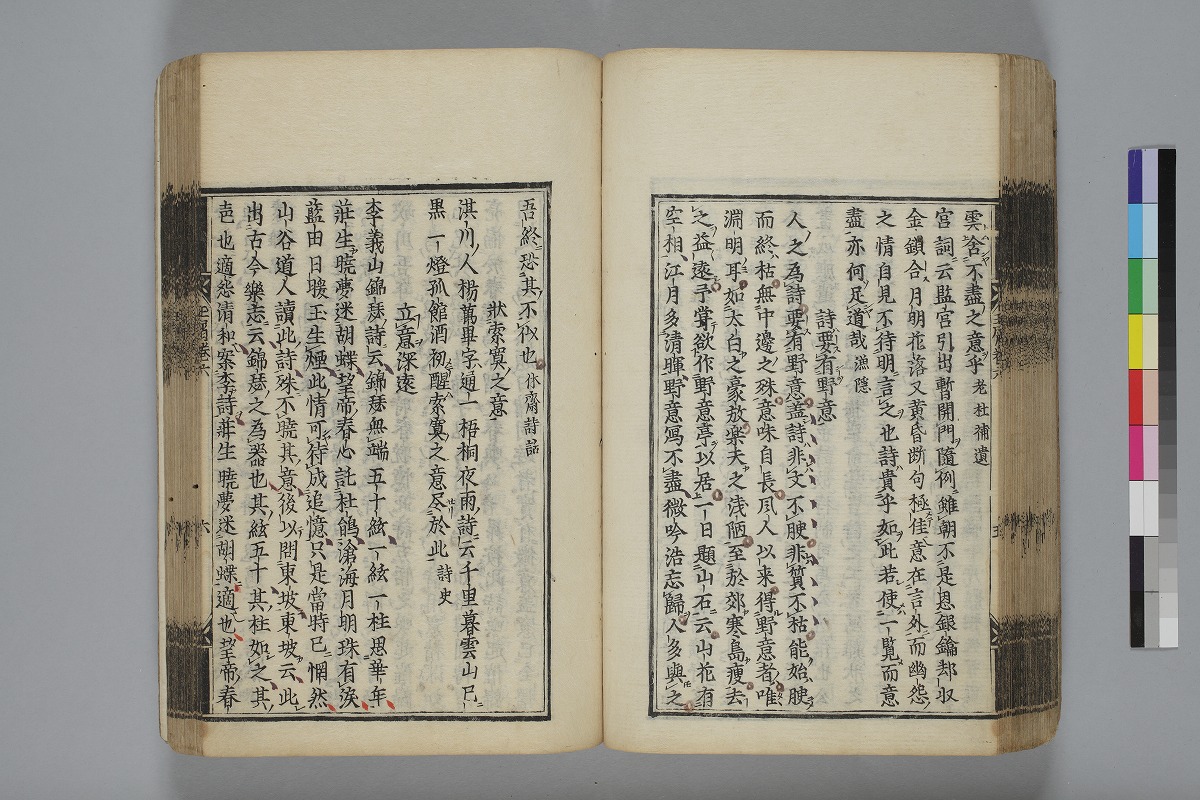 雲舍不盡之意乎 老杜補遺
宮詞云監宮引出暫開門隨例雖朝不是恩銀鑰却収
金鎖合月明花落又黃昏断句極佳意在言外而幽怨
之情自見不待明言之也詩貴乎如此若使一覽而意
盡亦何足道哉 漁隱
詩要有野意
人之為詩要有野意盖詩非文不腴非質不枯能始腴
而終枯無中邊之殊意味自長風人以来得野意者唯
淵明耳如太白之豪放樂天之浅陋至於郊寒島瘦去
之益遠予嘗欲作野意亭以居一日題山石云山花有
空相江月多清暉野意寫不盡微吟浩忘歸人多與之
吾終恐其不似也 休齋詩話
狀索寞之意
淇川人楊萬畢字通一梧桐夜雨詩云千里暮雲山已
黒一燈孤館酒初醒索寞之意尽於此 詩史
立意深遠
李義山錦瑟詩云錦瑟無端五十絃一絃一柱思華年
莊生曉夢迷胡蝶望帝春心託杜鵑滄海月明珠有淚
藍田日暖玉生煙此情可待成追憶只是當時已惘然
山谷道人讀此詩殊不曉其意後以問東坡東坡云此
出古今樂志云錦瑟之為器也其絃五十其柱如之其
声也適怨清和案李詩莊生曉夢迷胡蝶適也望帝春
五
六